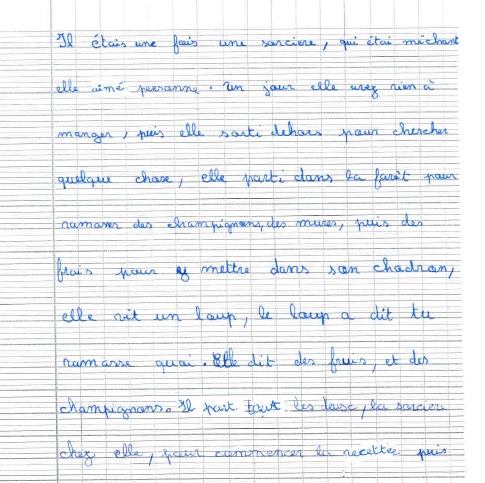 Il étais une fois une sorciere, qui étai méchant
elle aimé personne. Un jour elle avez rien à
manger, puis elle sorti dehors pour chercher
quelque chose, elle parti dans la forêt pour
ramaser des champignons, des mures, puis des
frais pour y mettre dans son chadron,
elle vit un loup, le loup a dit tu
ramasse quoi. Elle dit des fruis, et des
champignons. Il part tout les deux, la sorcier
chez elle, pour commencer la recettee puis